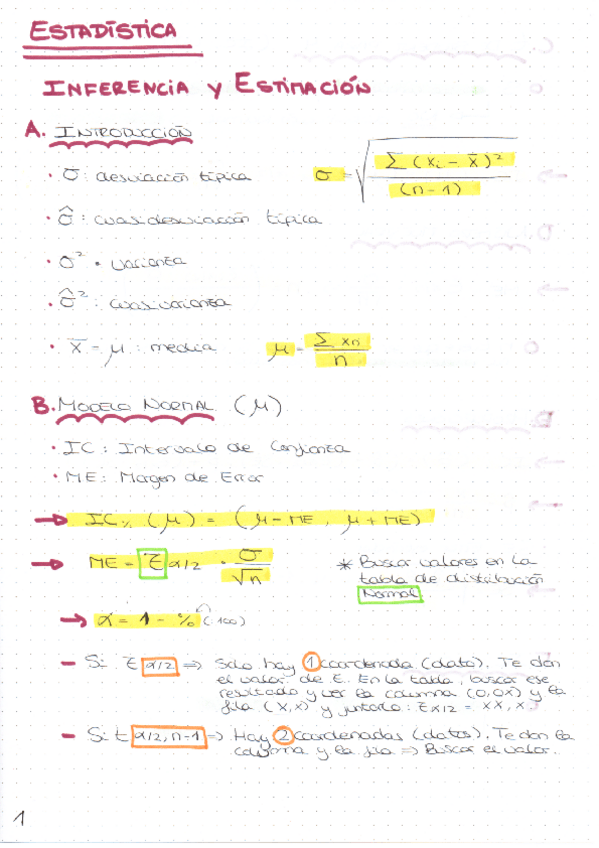 ESTADÍSTICA
INFERENCIA Y ESTIMACIÓN
A. INTRODUCCIÓN
• σ: desviación típica σ = √(Σ(xᵢ - x̄)² / (n-1))
• σ̂: cuasidesviación típica
• σ² • varianza
• σ̂²: cuasivarianza
• x̄ - μ: media μ = Σ xn / n
B. MODELO NORMAL (μ)
• IC: Intervalo de Confianza
• ME: Margen de Error
→ IC% (μ) = (μ - ME, μ + ME)
→ ME = Z α/2 · σ/√n * Buscar valores en la
tabla de distribución
Normal
→ α = 1 - % (:100)
- Si Z α/2 ⇒ Solo hay 1 coordenada (dato). Te dan
el valor de Z. En la tabla, buscar ese
resultado y ver la columna (0,0X) y la
fila (X,X) y juntarlo: Z α/2 = XX, X.
- Si t α/2, n-1 ⇒ Hay 2 coordenadas (datos). Te dan la
columna y la fila ⇒ Buscar el valor.
1